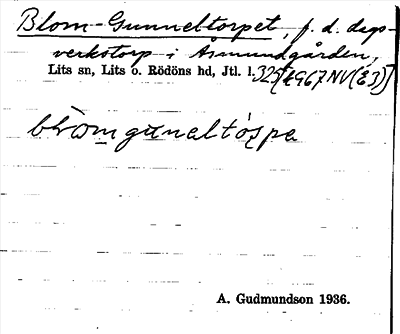 Blom-Gunneltorpet, f. d. dags-
verkstorp i Åsmundgården,
Lits sn, Lits o. Rödöns hd, Jtl. l. 325 [k967NV(E3)]
blomgunaltórpe
A. Gudmundson 1936.